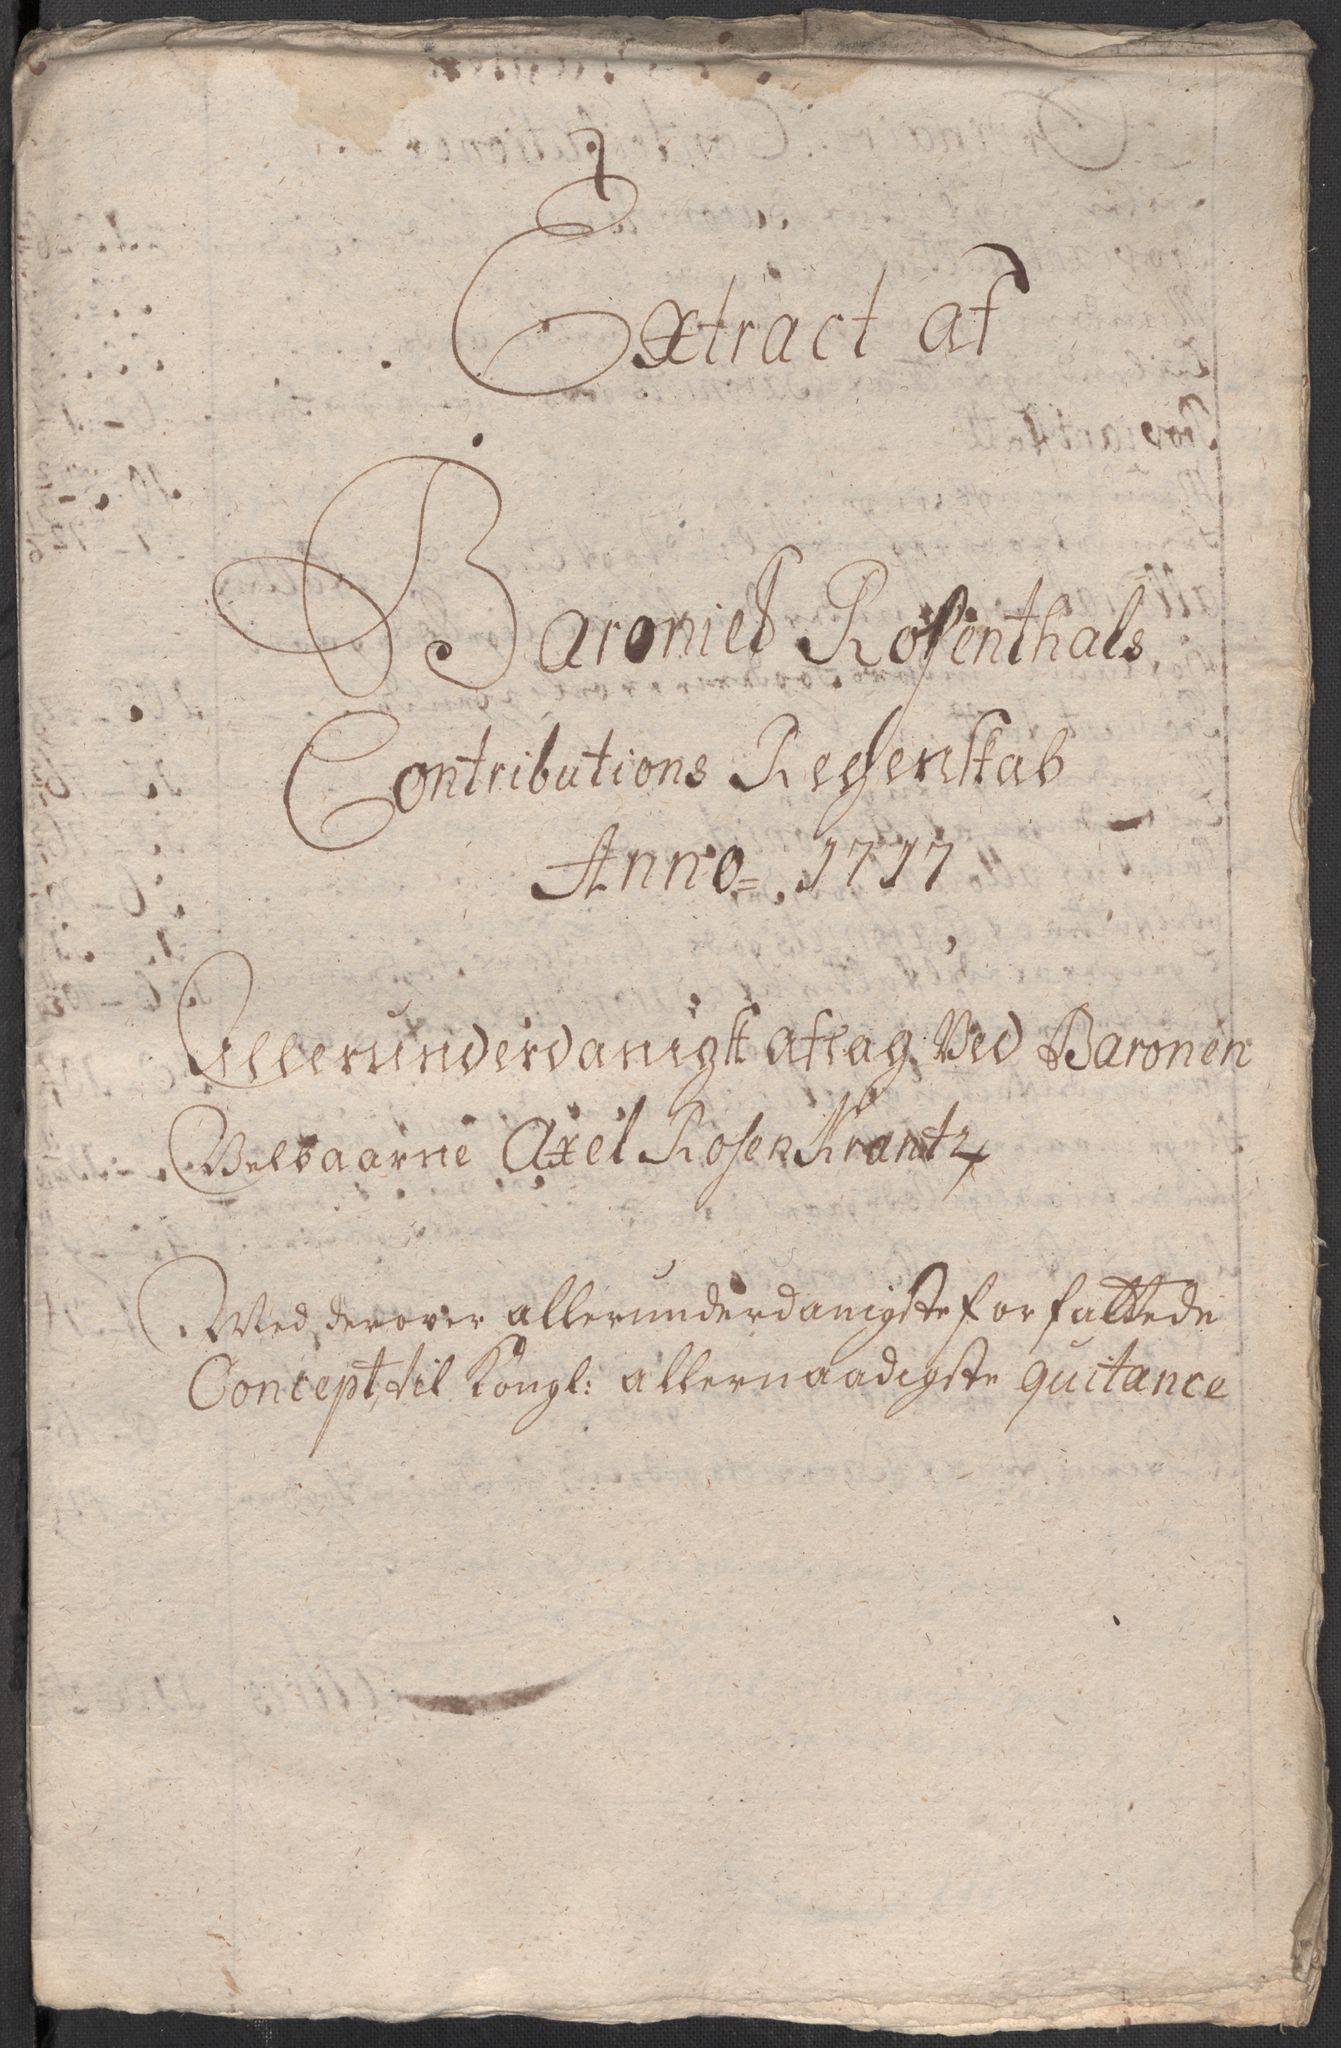 Extract af
Baroniet Rosenthals
Contributions Regenskab
Anno 1717
Allerunderdanigst aflag Ved Baronen
Velbaarne Axel RosenKrantz
Med derover allerunderdanigste forfattede
Concept til Kongl: allernaadigste quitance